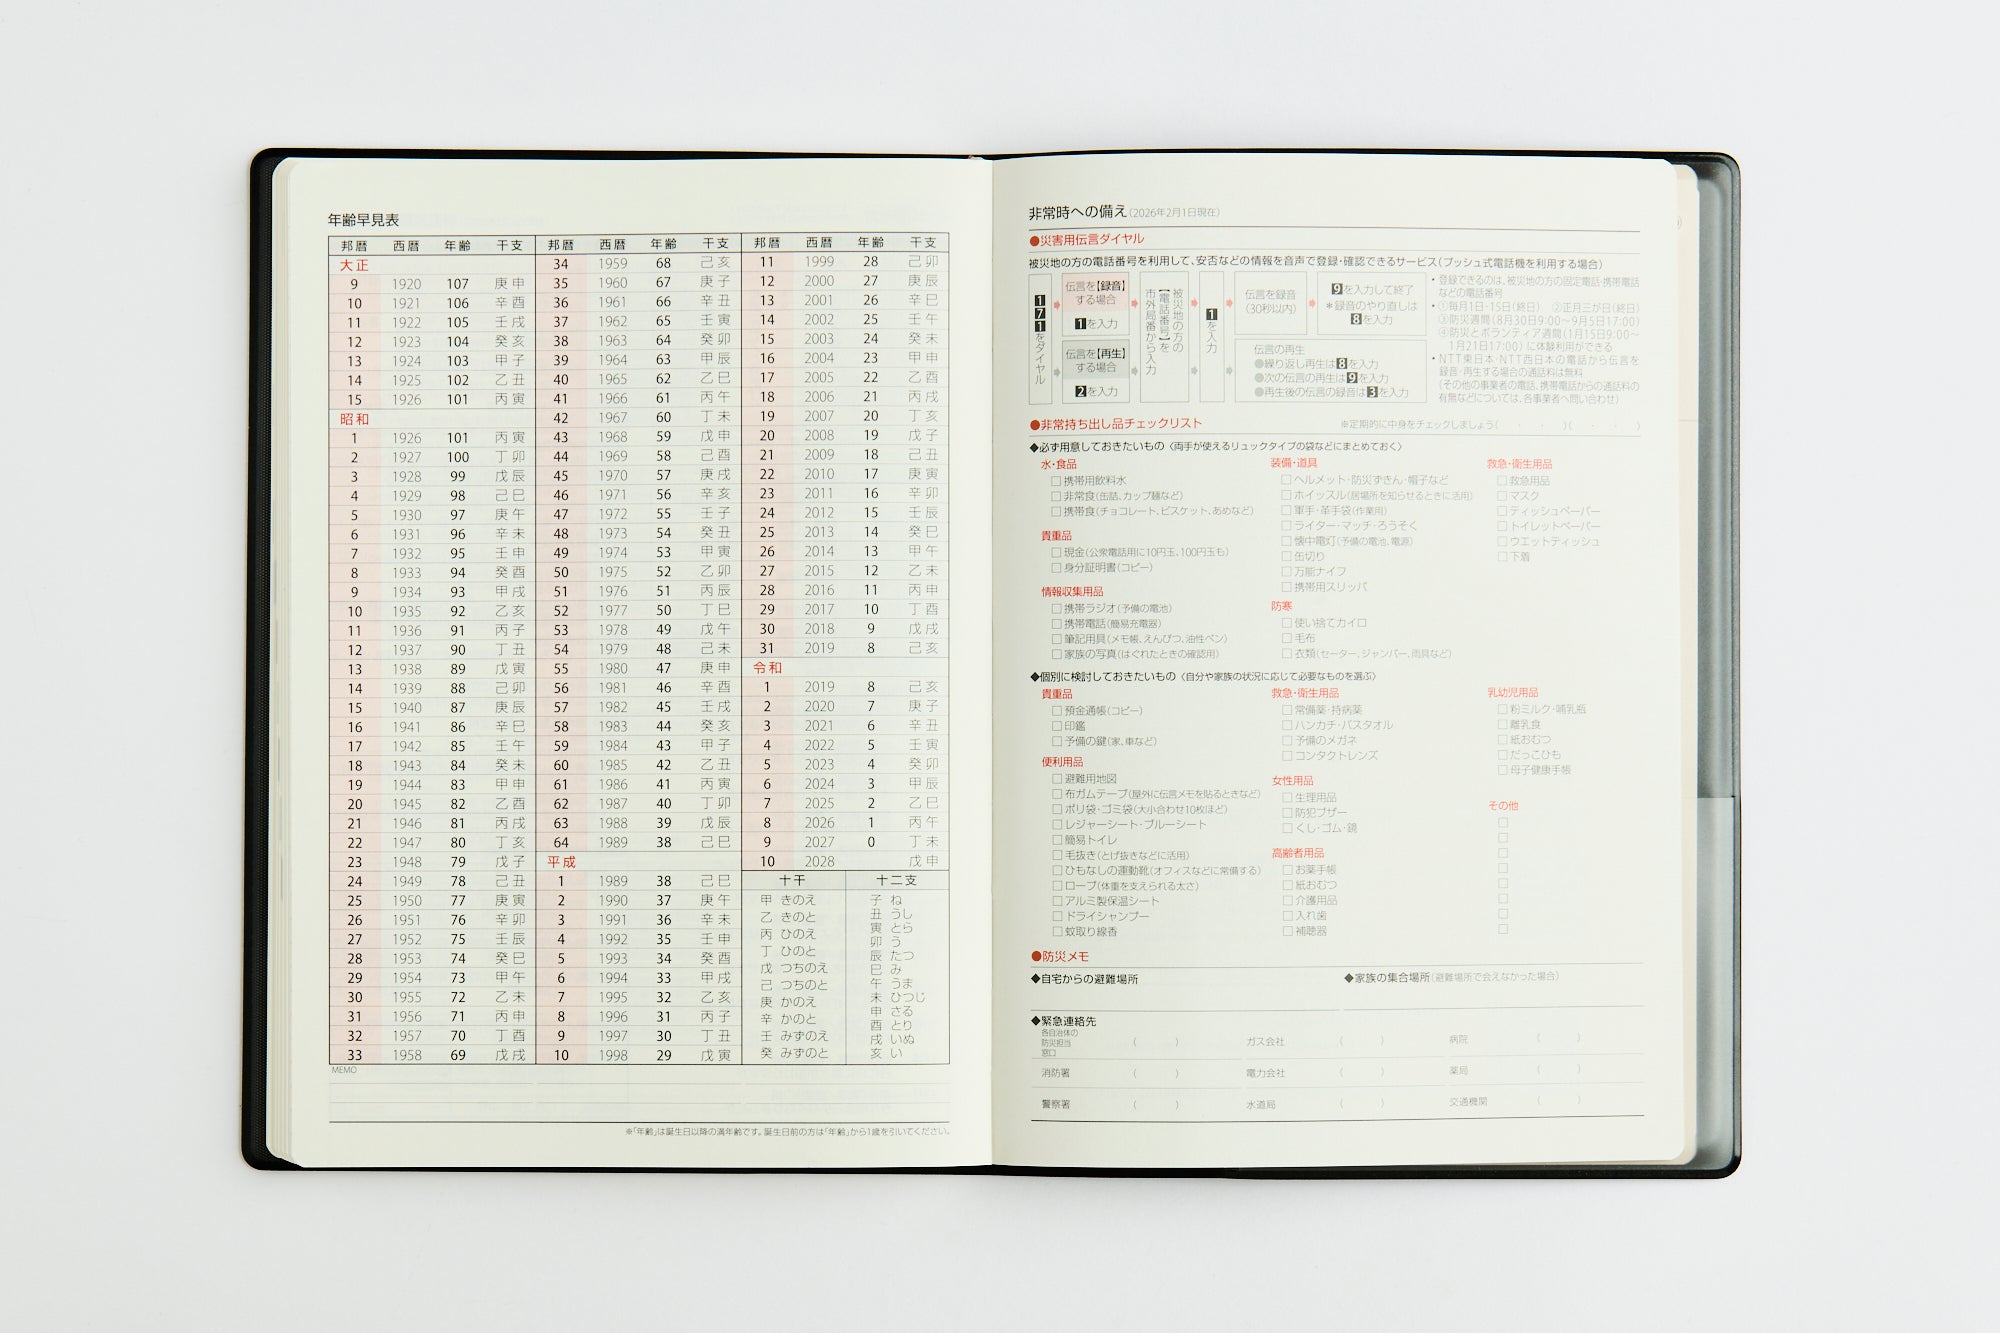 年齢早見表
邦暦 西暦 年齢 干支
大正
9 1920 107 庚申
10 1921 106 辛酉
11 1922 105 壬戌
12 1923 104 癸亥
13 1924 103 甲子
14 1925 102 乙丑
15 1926 101 丙寅
昭和
1 1926 101 丙寅
2 1927 100 丁卯
3 1928 99 戊辰
4 1929 98 己巳
5 1930 97 庚午
6 1931 96 辛未
7 1932 95 壬申
8 1933 94 癸酉
9 1934 93 甲戌
10 1935 92 乙亥
11 1936 91 丙子
12 1937 90 丁丑
13 1938 89 戊寅
14 1939 88 己卯
15 1940 87 庚辰
16 1941 86 辛巳
17 1942 85 壬午
18 1943 84 癸未
19 1944 83 甲申
20 1945 82 乙酉
21 1946 81 丙戌
22 1947 80 丁亥
23 1948 79 戊子
24 1949 78 己丑
25 1950 77 庚寅
26 1951 76 辛卯
27 1952 75 壬辰
28 1953 74 癸巳
29 1954 73 甲午
30 1955 72 乙未
31 1956 71 丙申
32 1957 70 丁酉
33 1958 69 戊戌
邦暦 西暦 年齢 干支
34 1959 68 己亥
35 1960 67 庚子
36 1961 66 辛丑
37 1962 65 壬寅
38 1963 64 癸卯
39 1964 63 甲辰
40 1965 62 乙巳
41 1966 61 丙午
42 1967 60 丁未
43 1968 59 戊申
44 1969 58 己酉
45 1970 57 庚戌
46 1971 56 辛亥
47 1972 55 壬子
48 1973 54 癸丑
49 1974 53 甲寅
50 1975 52 乙卯
51 1976 51 丙辰
52 1977 50 丁巳
53 1978 49 戊午
54 1979 48 己未
55 1980 47 庚申
56 1981 46 辛酉
57 1982 45 壬戌
58 1983 44 癸亥
59 1984 43 甲子
60 1985 42 乙丑
61 1986 41 丙寅
62 1987 40 丁卯
63 1988 39 戊辰
64 1989 38 己巳
平成
1 1989 38 己巳
2 1990 37 庚午
3 1991 36 辛未
4 1992 35 壬申
5 1993 34 癸酉
6 1994 33 甲戌
7 1995 32 乙亥
8 1996 31 丙子
9 1997 30 丁丑
10 1998 29 戊寅
邦暦 西暦 年齢 干支
11 1999 28 己卯
12 2000 27 庚辰
13 2001 26 辛巳
14 2002 25 壬午
15 2003 24 癸未
16 2004 23 甲申
17 2005 22 乙酉
18 2006 21 丙戌
19 2007 20 丁亥
20 2008 19 戊子
21 2009 18 己丑
22 2010 17 庚寅
23 2011 16 辛卯
24 2012 15 壬辰
25 2013 14 癸巳
26 2014 13 甲午
27 2015 12 乙未
28 2016 11 丙申
29 2017 10 丁酉
30 2018 9 戊戌
31 2019 8 己亥
令和
1 2019 8 己亥
2 2020 7 庚子
3 2021 6 辛丑
4 2022 5 壬寅
5 2023 4 癸卯
6 2024 3 甲辰
7 2025 2 乙巳
8 2026 1 丙午
9 2027 0 丁未
10 2028 戊申
十干
甲 きのえ
乙 きのと
丙 ひのえ
丁 ひのと
戊 つちのえ
己 つちのと
庚 かのえ
辛 かのと
壬 みずのえ
癸 みずのと
十二支
子 ね
丑 うし
寅 とら
卯 う
辰 たつ
巳 み
午 うま
未 ひつじ
申 さる
酉 とり
戌 いぬ
亥 い
MEMO
※「年齢」は誕生日以降の満年齢です。誕生日前の方は「年齢」から1歳を引いてください。
非常時への備え(2026年2月1日現在)
●災害用伝言ダイヤル
被災地の方の電話番号を利用して、安否などの情報を音声で登録・確認できるサービス(プッシュ式電話機を利用する場合)
171をダイヤル
伝言を【録音】
する場合
1を入力
伝言を【再生】
する場合
2を入力
被災地の方の
【電話番号】を
市外局番から入力
1を入力
伝言を録音
(30秒以内)
9を入力して終了
*録音のやり直しは
8を入力
伝言の再生
●繰り返し再生は8を入力
●次の伝言の再生は9を入力
●再生後の伝言の録音は3を入力
・登録できるのは、被災地の方の固定電話・携帯電話
などの電話番号
・①毎月1日・15日(終日) ②正月三が日(終日)
③防災週間(8月30日9:00〜9月5日17:00)
④防災とボランティア週間(1月15日9:00〜
1月21日17:00)に体験利用ができる
・NTT東日本・NTT西日本の電話から伝言を
録音・再生する場合の通話料は無料
(その他の事業者の電話、携帯電話からの通話料の
有無などについては、各事業者へ問い合わせ)
●非常持ち出し品チェックリスト
※定期的に中身をチェックしましょう( ・ ・ )( ・ ・ )
◆必ず用意しておきたいもの〈両手が使えるリュックタイプの袋などにまとめておく〉
水・食品
□携帯用飲料水
□非常食(缶詰、カップ麺など)
□携帯食(チョコレート、ビスケット、あめなど)
貴重品
□現金(公衆電話用に10円玉、100円玉も)
□身分証明書(コピー)
情報収集用品
□携帯ラジオ(予備の電池)
□携帯電話(簡易充電器)
□筆記用具(メモ帳、えんぴつ、油性ペン)
□家族の写真(はぐれたときの確認用)
装備・道具
□ヘルメット・防災ずきん・帽子など
□ホイッスル(居場所を知らせるときに活用)
□軍手・革手袋(作業用)
□ライター・マッチ・ろうそく
□懐中電灯(予備の電池、電源)
□缶切り
□万能ナイフ
□携帯用スリッパ
防寒
□使い捨てカイロ
□毛布
□衣類(セーター、ジャンパー、雨具など)
救急・衛生用品
□救急用品
□マスク
□ティッシュペーパー
□トイレットペーパー
□ウエットティッシュ
□下着
◆個別に検討しておきたいもの〈自分や家族の状況に応じて必要なものを選ぶ〉
貴重品
□預金通帳(コピー)
□印鑑
□予備の鍵(家、車など)
便利用品
□避難用地図
□布ガムテープ(屋外に伝言メモを貼るときなど)
□ポリ袋・ゴミ袋(大小合わせ10枚ほど)
□レジャーシート・ブルーシート
□簡易トイレ
□毛抜き(とげ抜きなどに活用)
□ひもなしの運動靴(オフィスなどに常備する)
□ロープ(体重を支えられる太さ)
□アルミ製保温シート
□ドライシャンプー
□蚊取り線香
救急・衛生用品
□常備薬・持病薬
□ハンカチ・バスタオル
□予備のメガネ
□コンタクトレンズ
女性用品
□生理用品
□防犯ブザー
□くし・ゴム・鏡
高齢者用品
□お薬手帳
□紙おむつ
□介護用品
□入れ歯
□補聴器
乳幼児用品
□粉ミルク・哺乳瓶
□離乳食
□紙おむつ
□だっこひも
□母子健康手帳
その他
□
□
□
□
□
□
□
□
●防災メモ
◆自宅からの避難場所
◆家族の集合場所(避難場所で会えなかった場合)
◆緊急連絡先
各自治体の
防災担当
窓口 ( ) ガス会社 ( ) 病院 ( )
消防署 ( ) 電力会社 ( ) 薬局 ( )
警察署 ( ) 水道局 ( ) 交通機関 ( )